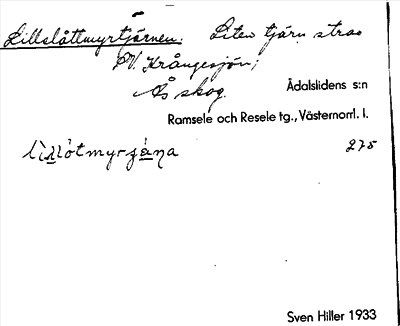 Lillslåttmyrtjärnen. Liten tjärn strax
V. Krångesjön;
Ås skog.
Ådalslidens s:n
Ramsele och Resele tg., Västernorrl. l.
275
Sven Hiller 1933